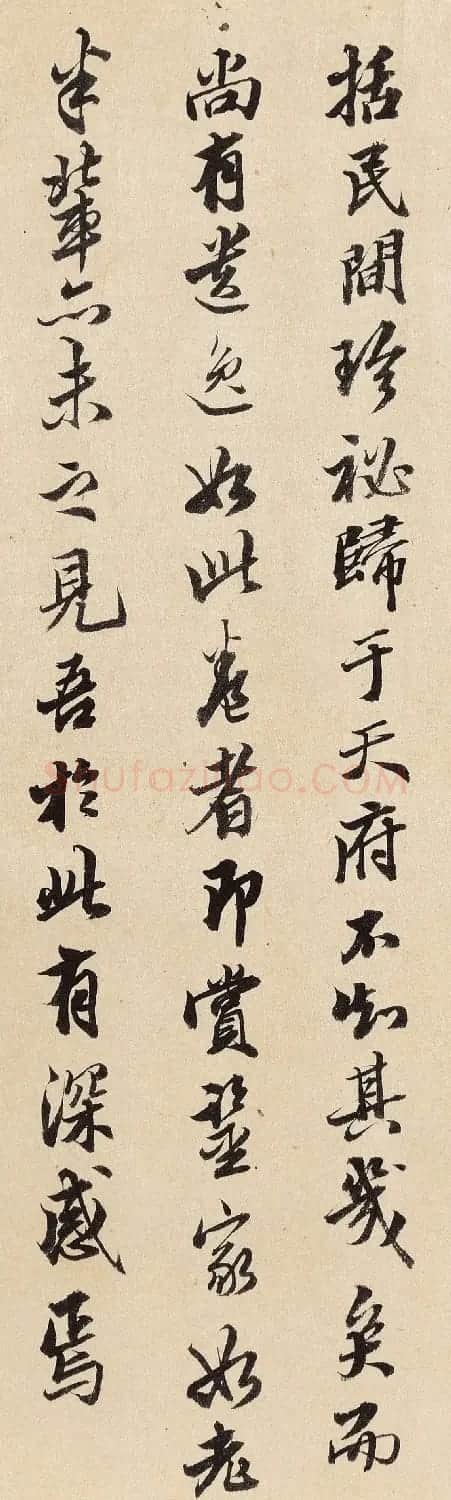 括民間珍祕歸于天府不知其幾矣而
尚有遺逸如此卷者即賞鑒家如老
米輩亦未之見吾於此有深感焉
shufazidao.COM